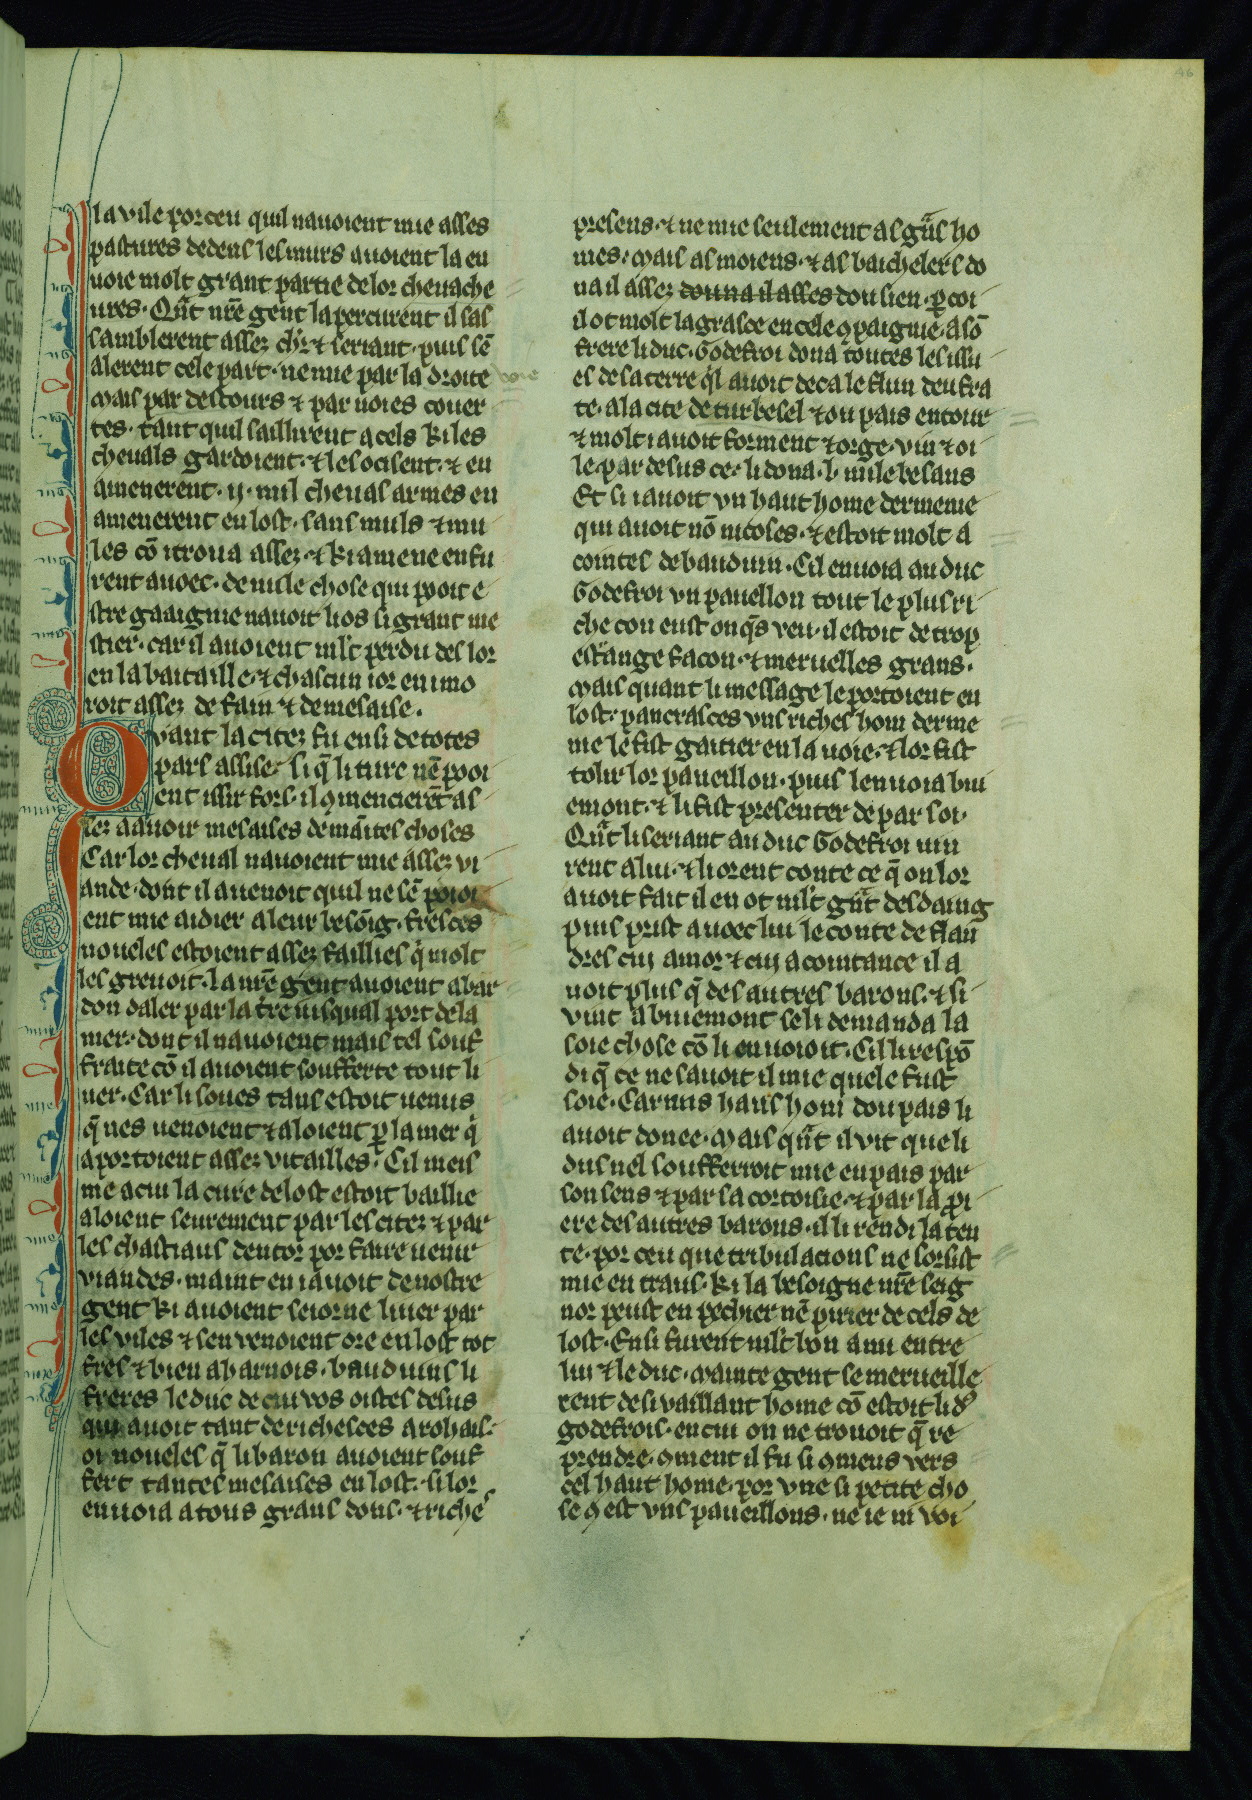 la vile por ceu quil nauoient mie asses
pastures dedens les murs auoient la en
uoie molt grant partie de lor cheuache
ures. Qñt nr̃e gent laperçurent il sas
samblerent assez chr̃ ⁊ seriant. puis sẽ
alerent cele part. ne mie par la droite
voie
Mais par destours ⁊ par uoies couer
tes. tant quil saillirent a cels ki les
cheuals gardoient. ⁊ les ocisent. ⁊ en
amenerent. ij. mil cheuas armes en
amenerent en lost. sans muls ⁊ mu
les cõ i troua assez. ⁊ ki amene en fu
rent auoec. de nule chose qui pooit e
stre gaaignie nauoit lios si grant me
stier. car il auoient ml't perdu des lor
en la bataille. ⁊ chascun ior en i mo
roit assez de faim ⁊ de mesaise.
Quant la citez fu ensi de totes
pars assise. si q̃ li turc nẽ pooi
ent issir fors. il ꝯmencierẽt as
sez a auoir mesaises de mãites choses
Car lor cheual nauoient mie assez vi
ande. dont il auenoit quil ne sẽ pooi
ent mie aidier a leur besõig. fresces
noueles estoient assez faillies q̃ molt
les greuoit. la nr̃e gent auoient abar
don daler par la tr̃e iusqual port de la
mer. dont il nauoient mais tel souf
fraite cõ il auoient soufferte tout li
uer. Car li soues tans estoit uenus
q̃ nes uenoient ⁊ aloient ꝑ la mer q̃
aportoient assez vitailles. Cil meis
me a cui la cure de lost estoit baillie
aloient seurement par les citez ⁊ par
les chastiaus dentor por faire uenir
viandes. maint en i auoit de nostre
gent ki auoient seiorne liuer par
les viles ⁊ sen venoient ore en lost tot
fres ⁊ bien a harnois. bauduins li
freres le duc de cui vos oistes desus
qui auoit tant de richesces a rohais.
oi noueles q̃ li baron auoient souf
fert tantes mesaises en lost. si lor
enuoia a tous grans dons. ⁊ riche
presens. ⁊ ne mie seulement as gñs ho
mes. Mais as moiens. ⁊ as baichelers do
na il assez donna il asses dou sien. ꝑ coi
il ot molt la grasce en cele ꝯpaignie. a sõ
frere li duc. Godefroi dona toutes les issu
es de sa terre q̃l auoit deca le flun deufra
te. a la cite de turbesel ⁊ ou pais entour
⁊ molt i auoit forment ⁊ orge. vin ⁊ oi
le. par desus ce. li dona. l. mile besans
Et si i auoit vn haut home dermenie
qui auoit nõ nicoles. ⁊ estoit molt a
cointes de bauduin. Cil enuoia au duc
Godefroi vn paueillon tout le plus ri
che con eust onq̃s veu. il estoit de trop
estrange facon. ⁊ merueilles grans.
Mais quant li message le portoient en
lost. pancrasces vns riches hom derme
nie le fist gaitier en la uoie. ⁊ lor fist
tolir lor paueillon. puis lenuoia bui
emont. ⁊ li fist presenter de par soi.
Qñt li seriant au duc Godefroi uin
rent a lui. ⁊ li orent conte ce q̃ on lor
auoit fait il en ot ml't gñt desdaing
puis prist auoec lui le conte de flan
dres cui amor ⁊ cui acointance il a
uoit plus q̃ des autres barons. ⁊ si
vint a buiemont se li demanda la
soie chose cõ li enuoioit. Cil li respõ
di q̃ ce ne sauoit il mie quele fust
soie. Car nus haus hom dou pais li
auoit donee. Mais qñt il vit que li
dus nel soufferroit mie en pais par
son sens ⁊ par sa cortoisie. ⁊ par la pi
ere des autres barons. il li rendi la ten
te. por ceu que tribulacions ne sorsist
mie en traus. ki la besoigne nr̃e seig
nor peust en pechier nẽ pirier de cels de
lost. Ensi furent ml't bon ami entre
lui ⁊ le duc. Mainte gent se merueille
rent de si vaillant home cõ estoit li dꝰ
godefrois. en cui on ne trouoit q̃ re
prendre. ꝯment il fu si ꝯmeus vers
cel haut home. por vne si petite cho
se ꝯ est vns paueillons. ne ie ni voi